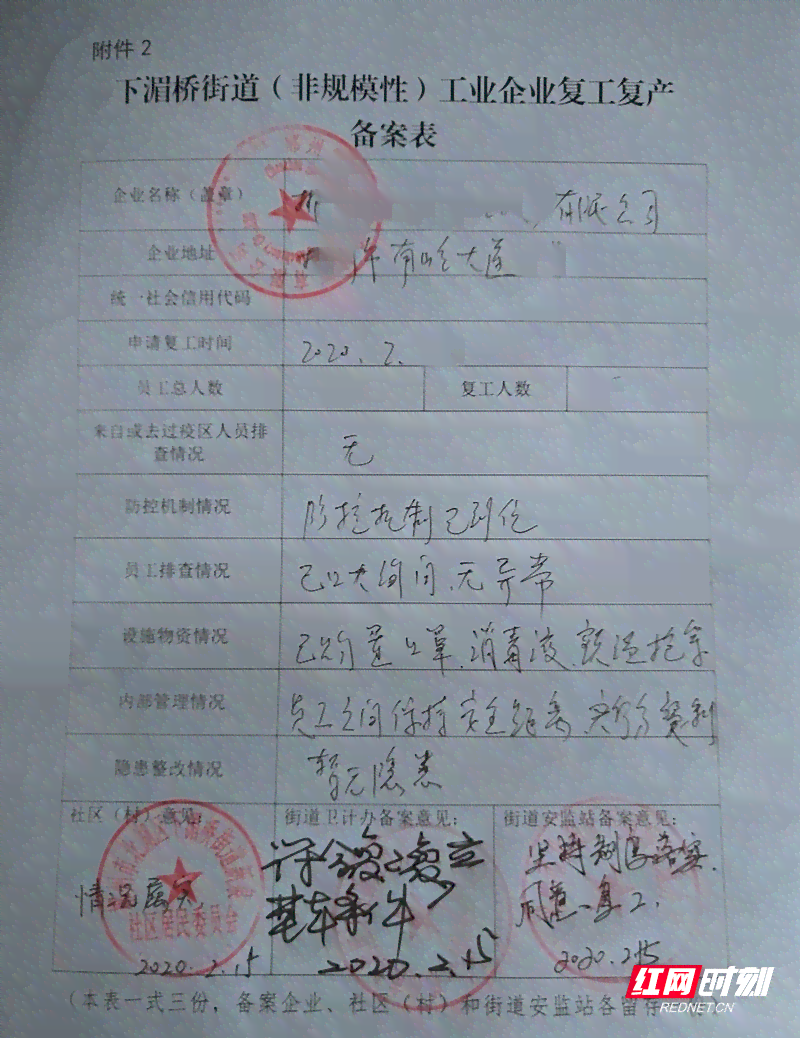 附件 2
下湄桥街道（非规模性）工业企业复工复产
备案表
企业名称（盖章） 有限公司
企业地址 大道
统一社会信用代码
申请复工时间 2020.2.
员工总人数 复工人数
来自或去过疫区人员排
查情况 无
防控机制情况 防控机制已到位
员工排查情况 无异常
设施物资情况 口罩、消毒液、额温枪等
内部管理情况 员工之间保持安全距离
隐患整改情况 暂无隐患
社区（村）意见： 街道卫计办备案意见： 街道安监站备案意见：
情况属实 符合复工复产 坚持制度落实，
基本条件 同意复工，
2020.2.15 2020.2.15 2020.2.15
社区居民委员会
（本表一式三份，备案企业、社区（村）和街道安监站各留存
红网时刻
REDNET.CN